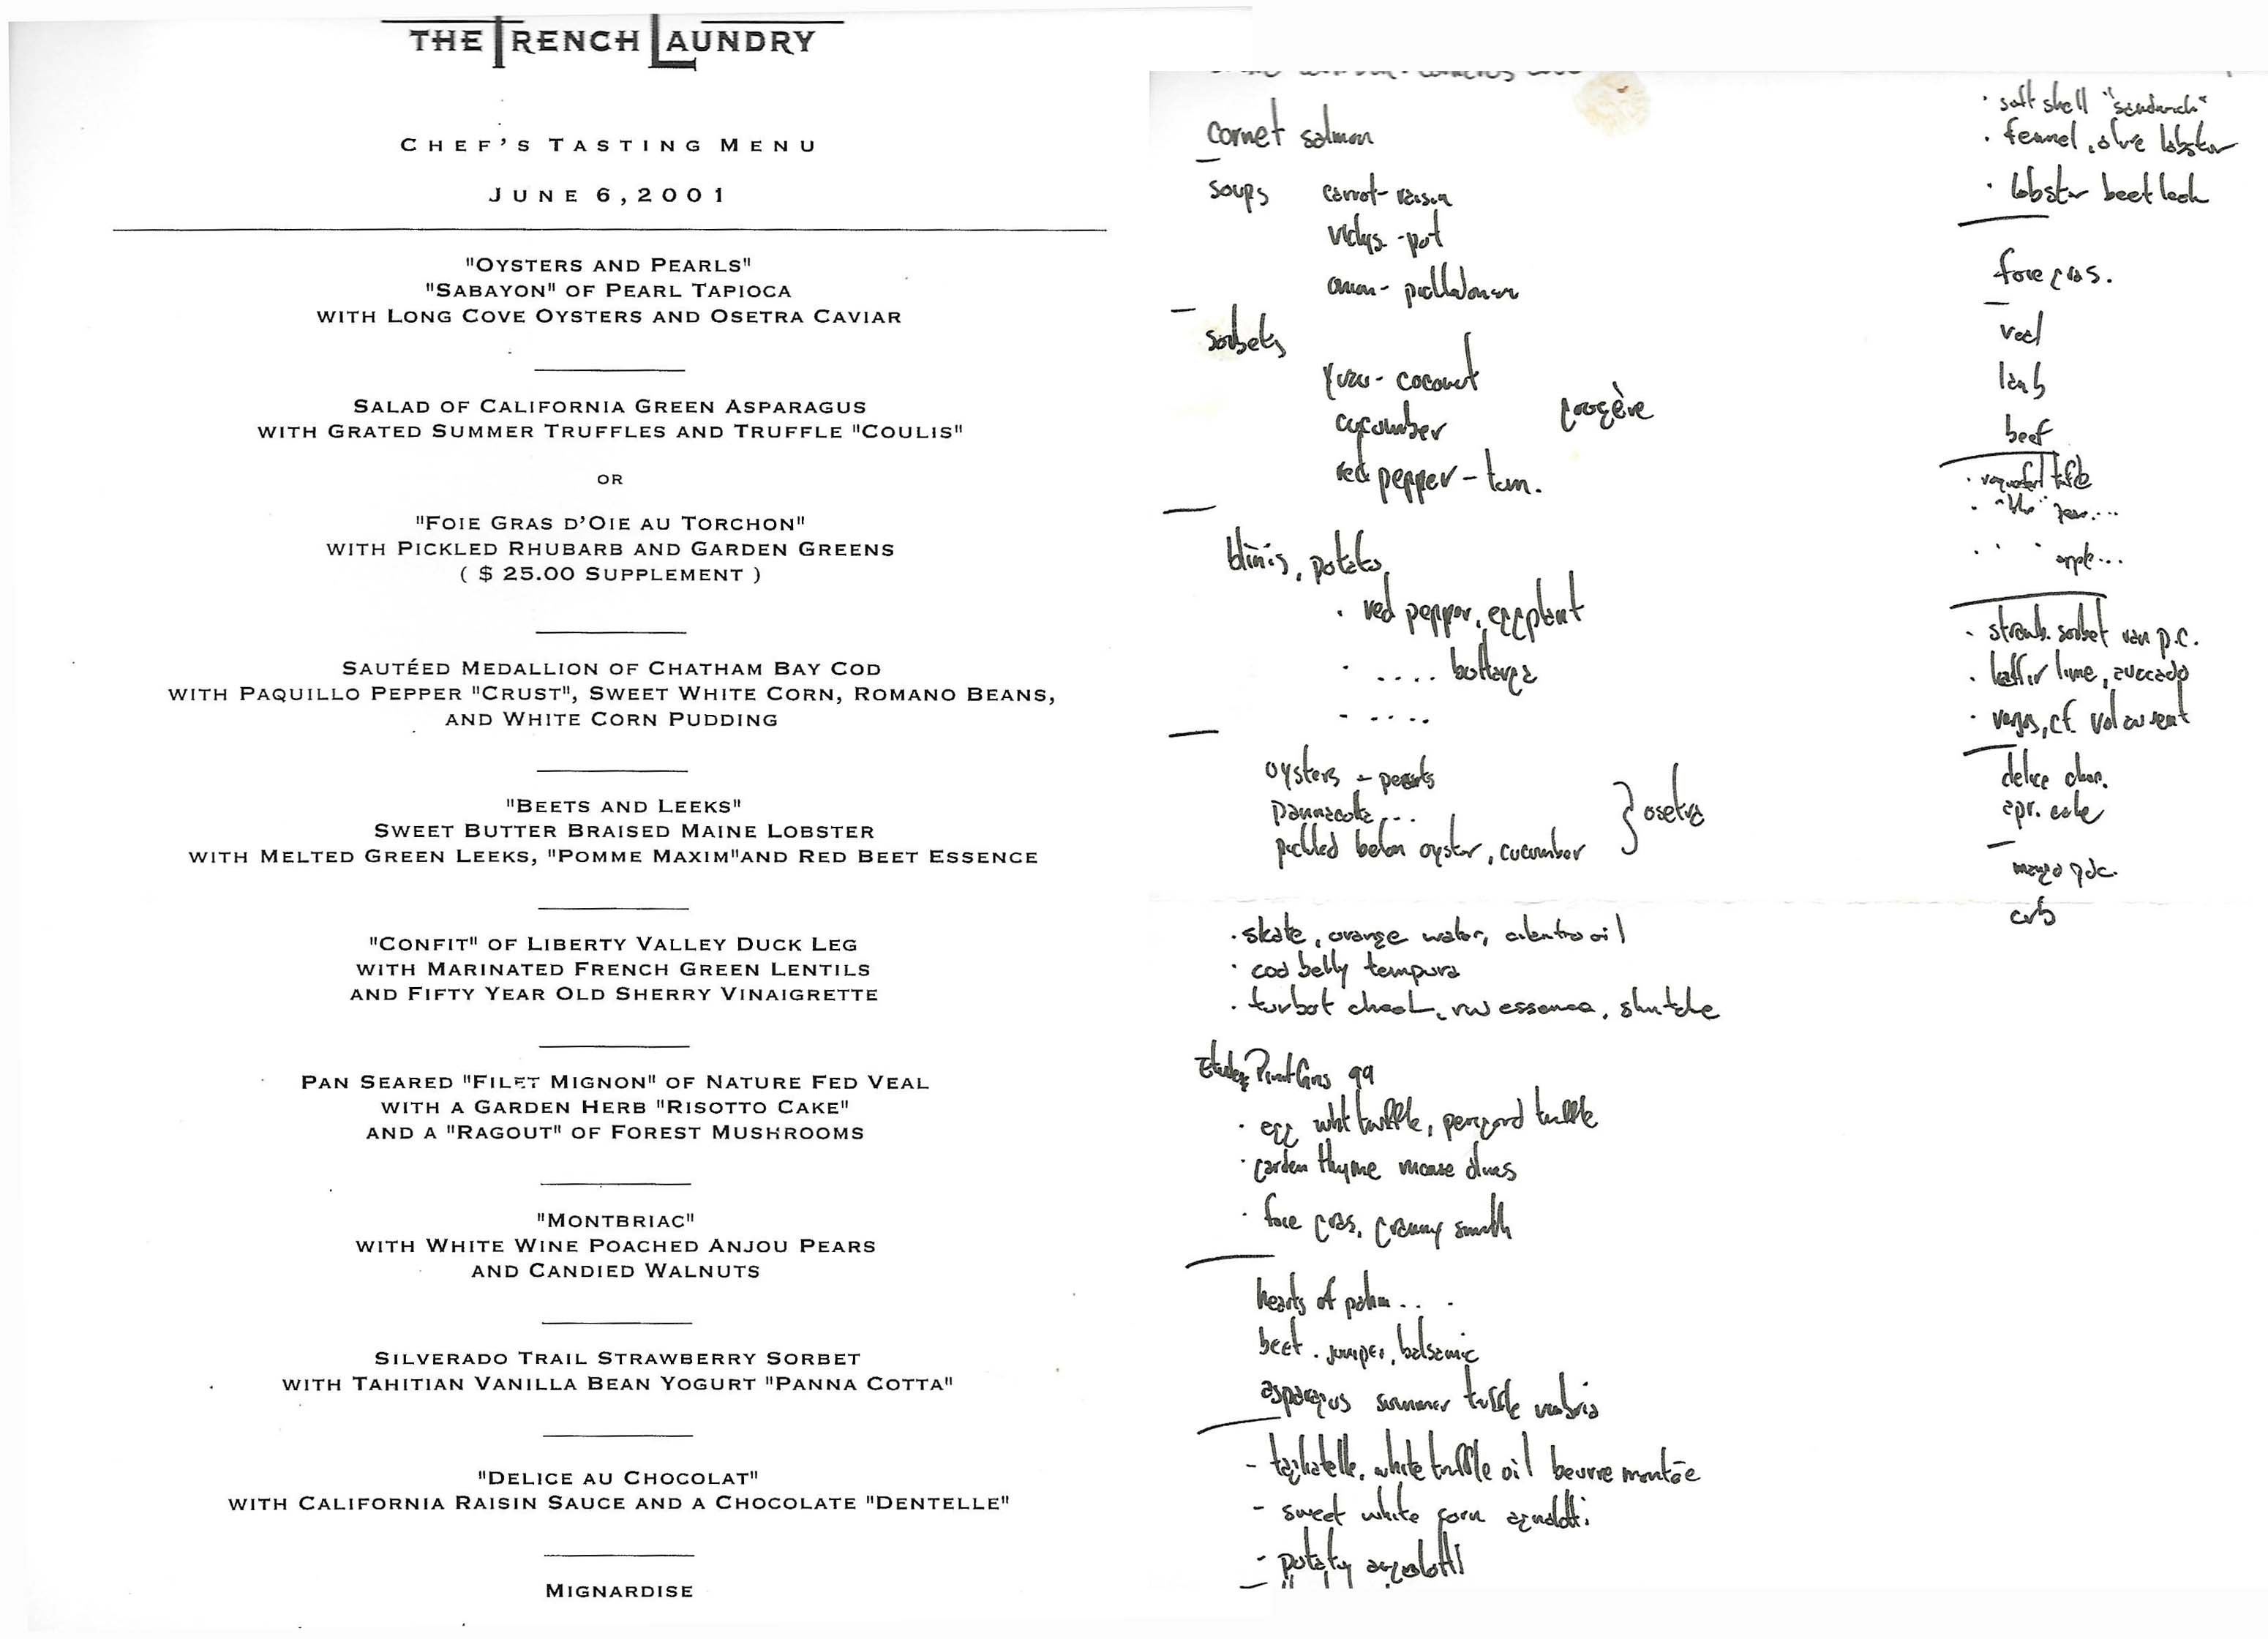 THE FRENCH LAUNDRY
CHEF'S TASTING MENU
JUNE 6, 2001
"OYSTERS AND PEARLS"
"SABAYON" OF PEARL TAPIOCA
WITH LONG COVE OYSTERS AND OSETRA CAVIAR
SALAD OF CALIFORNIA GREEN ASPARAGUS
WITH GRATED SUMMER TRUFFLES AND TRUFFLE "COULIS"
OR
"FOIE GRAS D'OIE AU TORCHON"
WITH PICKLED RHUBARB AND GARDEN GREENS
( $ 25.00 SUPPLEMENT )
SAUTÉED MEDALLION OF CHATHAM BAY COD
WITH PAQUILLO PEPPER "CRUST", SWEET WHITE CORN, ROMANO BEANS,
AND WHITE CORN PUDDING
"BEETS AND LEEKS"
SWEET BUTTER BRAISED MAINE LOBSTER
WITH MELTED GREEN LEEKS, "POMME MAXIM"AND RED BEET ESSENCE
"CONFIT" OF LIBERTY VALLEY DUCK LEG
WITH MARINATED FRENCH GREEN LENTILS
AND FIFTY YEAR OLD SHERRY VINAIGRETTE
PAN SEARED "FILET MIGNON" OF NATURE FED VEAL
WITH A GARDEN HERB "RISOTTO CAKE"
AND A "RAGOUT" OF FOREST MUSHROOMS
"MONTBRIAC"
WITH WHITE WINE POACHED ANJOU PEARS
AND CANDIED WALNUTS
SILVERADO TRAIL STRAWBERRY SORBET
WITH TAHITIAN VANILLA BEAN YOGURT "PANNA COTTA"
"DELICE AU CHOCOLAT"
WITH CALIFORNIA RAISIN SAUCE AND A CHOCOLATE "DENTELLE"
MIGNARDISE
cornet salmon
soups carrot-raisin
vichys.-pot
onion-
sorbets
yuzu-coconut
cucumber gougère
red pepper - tom.
blinis, potato
· red pepper, eggplant
· .... bottarga
- .....
oysters - pearls
pannacotta...
pickled belon oyster, cucumber } osetra
· skate, orange water, cilantro oil
· cod belly tempura
· turbot cheek, rw essence,
Etude Pinot Gris 99
· egg whit truffle, perigord truffle
· garden thyme mousse olives
· foie gras, granny smith
hearts of palm....
beet. juniper, balsamic
asparagus summer truffle umbria
- tagliatelle, white truffle oil beurre montée
- sweet white corn agnolotti
- potato agnolotti
· soft shell "sandwich"
· fennel, olive lobster
· lobster beet leek
foie gras.
veal
lamb
beef
· roquefort truffle
· pear....
apple...
· strawb. sorbet van p.c.
· kaffir lime, avocado
· cf. vol au vent
delice choc.
apr. cake
mango